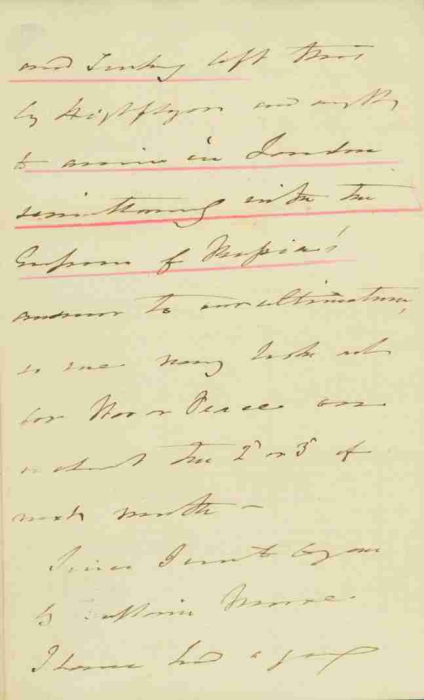 and Turkey left this
by Highflyer and ought
to arrive in London
simultaneously with the
Emperor of Russia's
answer to our ultimatum,
so we may look out
for War or Peace on
or about the 2d or 3d of
next month -
Since I wrote to you
by Captain Moore
I have had a